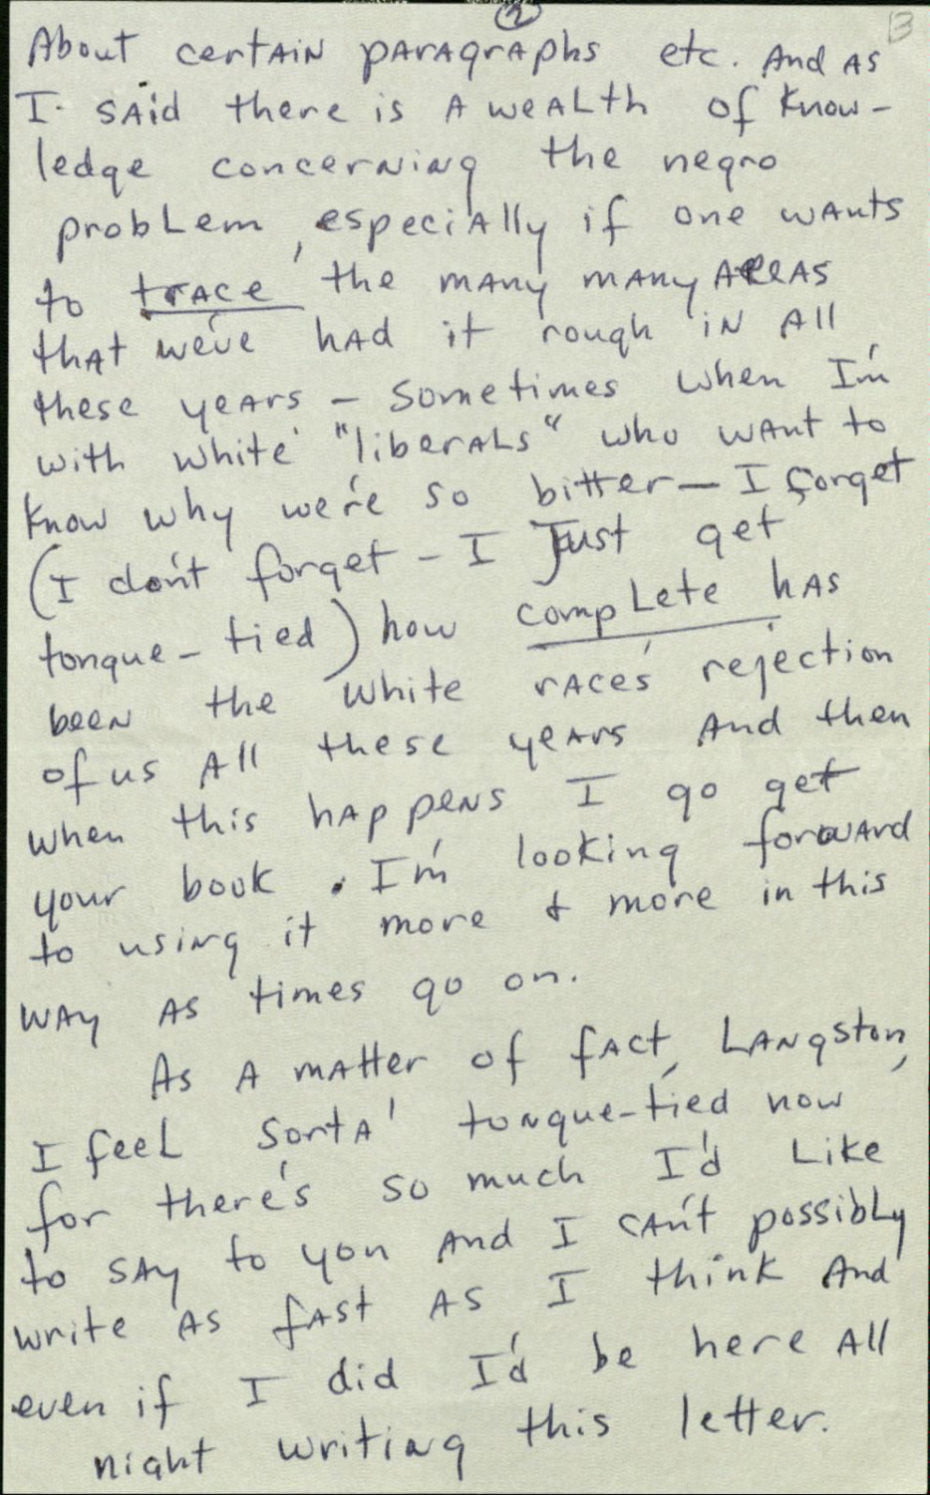 2
3
About certain paragraphs etc. And as
I said there is a wealth of know-
ledge concerning the negro
problem, especially if one wants
to trace the many many areas
that we've had it rough in all
these years – sometimes when I'm
with white "liberals" who want to
know why we're so bitter — I forget
(I don't forget – I just get
tongue-tied) how complete has
been the white races' rejection
of us all these years and then
when this happens I go get
your book. I'm looking forward
to using it more & more in this
way as times go on.
As a matter of fact, Langston,
I feel sorta' tongue-tied now
for there's so much I'd like
to say to you and I can't possibly
write as fast as I think and
even if I did I'd be here all
night writing this letter.